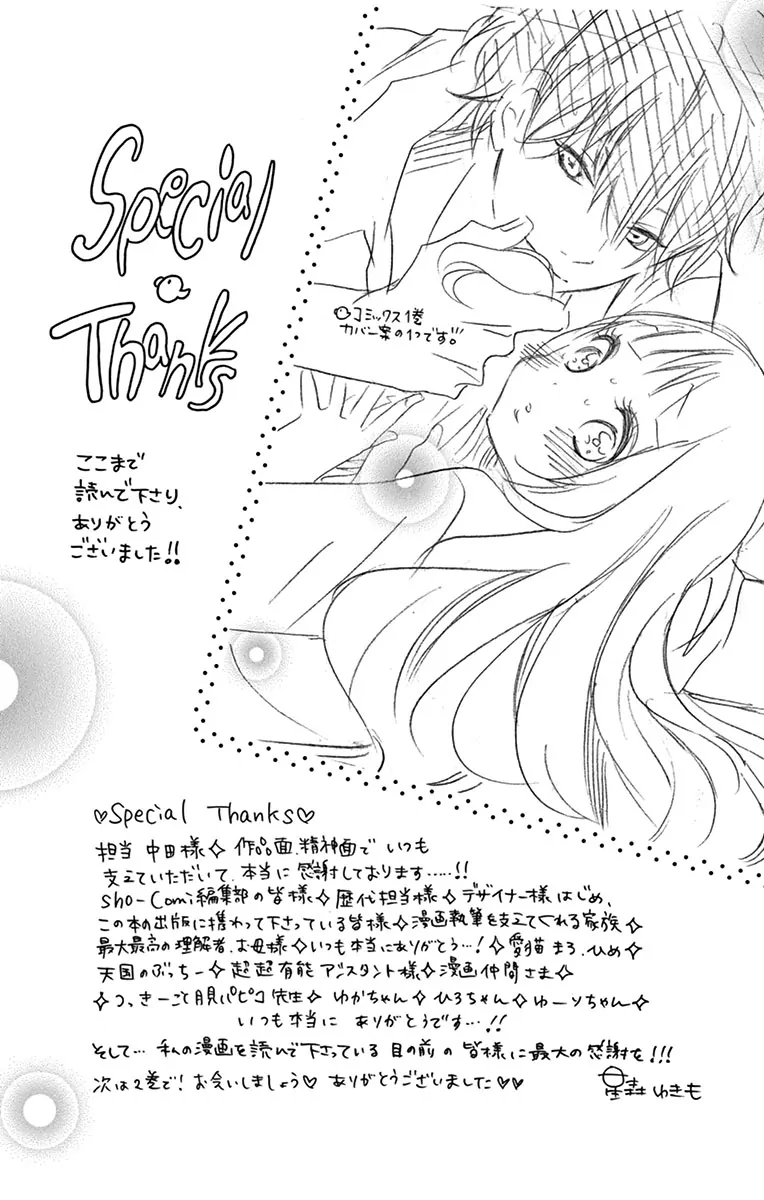 Special
Thanks
ここまで
読んで下さり、
ありがとう
ございました!!
コミックス1巻
カバー案の1つです!!
♡Special Thanks♡
担当 中田様✧ 作品面、精神面で いつも
支えていただいて、本当に 感謝しております……!!
Sho-Comi編集部の皆様✧歴代担当様✧デザイナー様 はじめ、
この本の出版に携わって下さっている皆様✧漫画執筆を支えてくれる家族✧
最大最高の理解者、お母様✧いつも本当にありがとう…!✧愛猫 まろ、ひめ✧
天国のぶっちー✧超超有能 アシスタント様✧漫画仲間さま✧
✧つっきーこと月貝パピコ先生✧ ゆかちゃん✧ひろちゃん✧ゆーりちゃん✧
いつも本当に ありがとうです…!!
そして… 私の漫画を読んで下さっている 目の前 の 皆様に最大の感謝を!!!
次は2巻で! お会いしましょう♡ ありがとうございました♡♡
星森 ゆきも